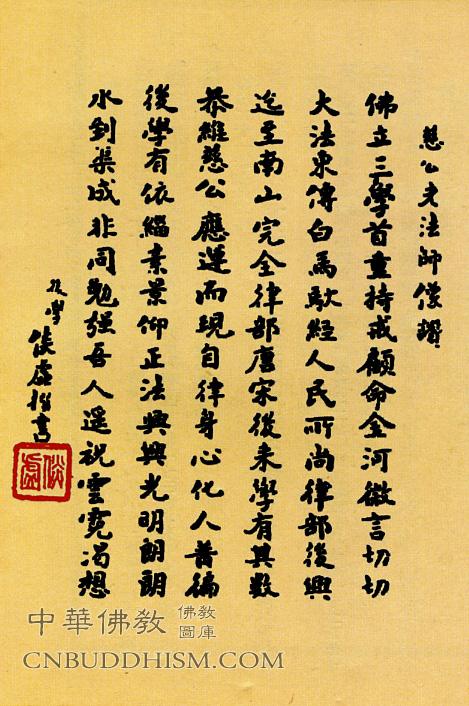 慈公老法師僕讚
佛立三學首重持戒顧命金河微言切切
大法東傳白馬馱經人民所尚律部後興
迄至南山完全律部唐宋後來學有其數
恭維慈公應運而現自律身心化人普徧
後學有依緇素景仰正法興興光明朗朗
水到渠成非同勉強吾人遥祝雲霓渴想
後學倓虛撰書
倓虛
中華佛教 佛教圖庫
CNBUDDHISM.COM